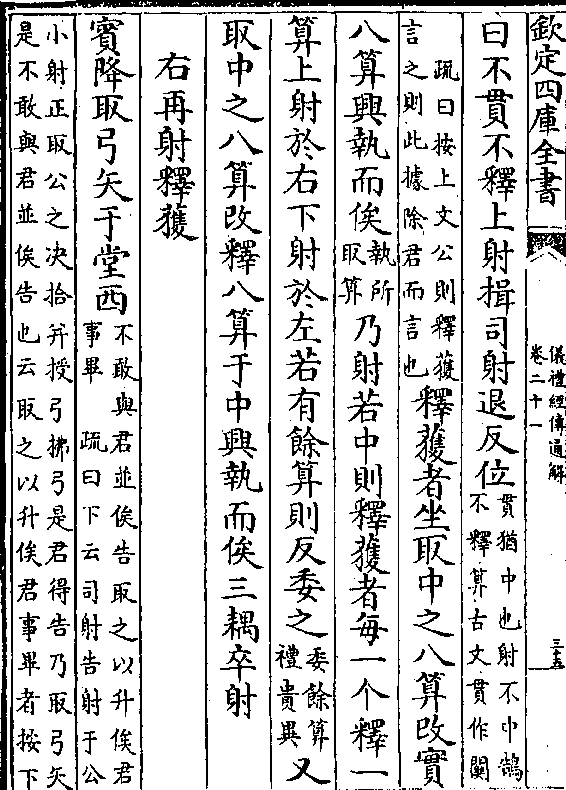 欽定四庫全書
儀禮經傳通解
卷二十一
三五
曰不貫不釋上射揖司射退反位
貫猶中也射不中鵠
不釋算古文貫作關
疏曰按上文公則釋獲
言之則此據除君而言也
釋獲者坐取中之八算改實
八算興執而俟
執所
取算
乃射若中則釋獲者每一个釋一
算上射於右下射於左若有餘算則反委之
委餘算
禮貴異
又
取中之八算改釋八算于中興執而俟三耦卒射
右再射釋獲
賓降取弓矢于堂西
不敢與君並俟告取之以升俟君
事畢　疏曰下云司射告射于公
小射正取公之决拾并授弓拂弓是君得告乃取弓矢
是不敢與君並俟告也云取之以升俟君事畢者按下